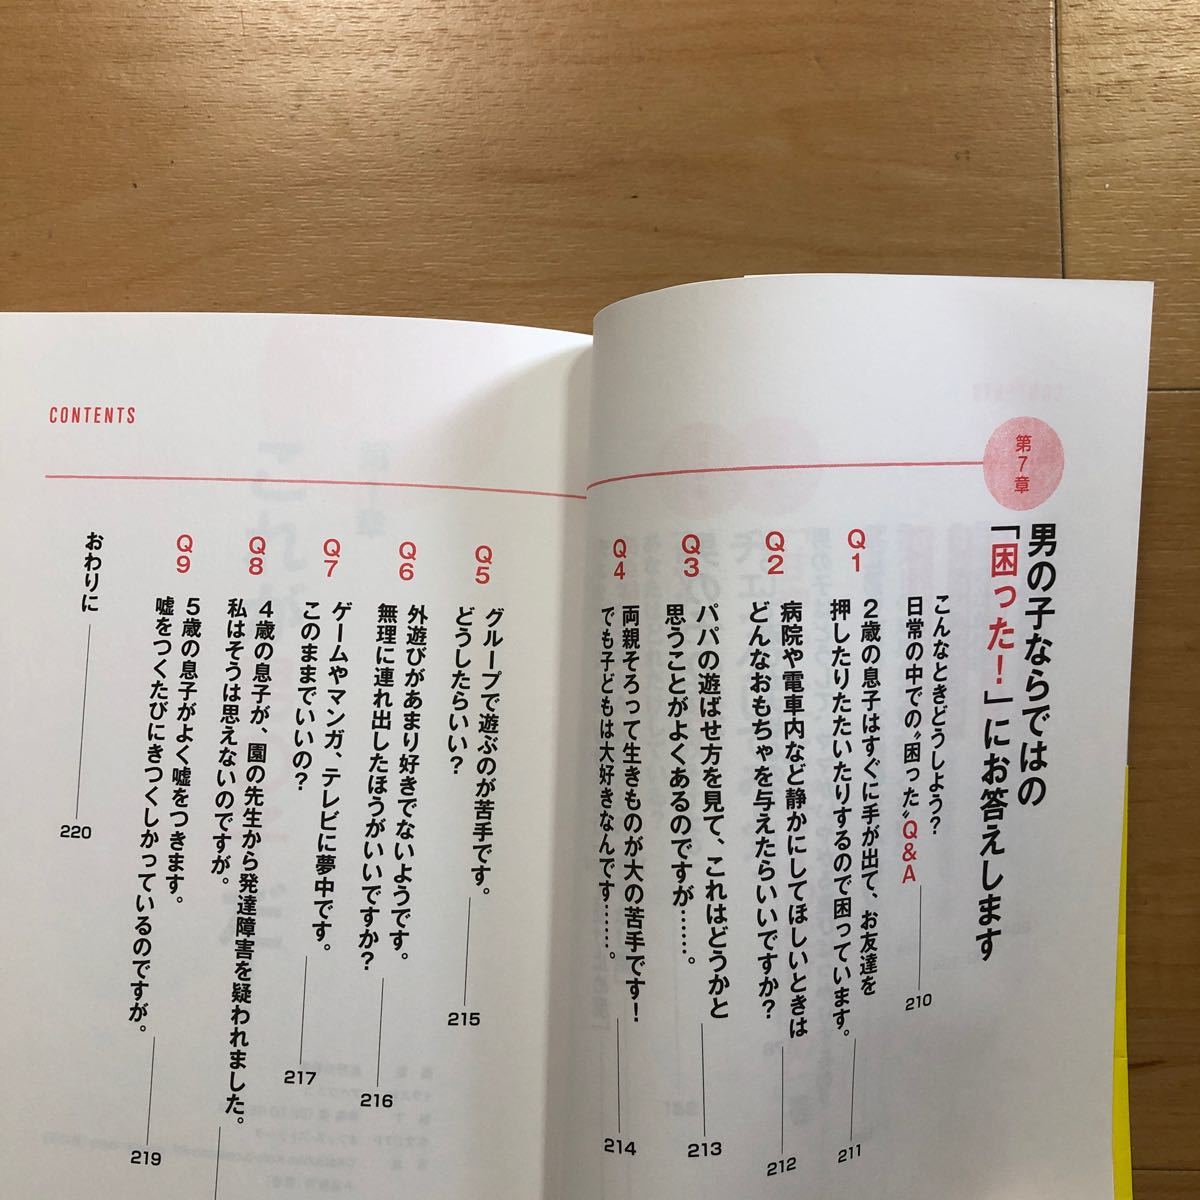 第7章
男の子ならではの
「困った！」にお答えします
こんなときどうしよう？
日常の中での〝困った〟Q&A 210
Q1
2歳の息子はすぐに手が出て、お友達を
押したりたたいたりするので困っています。 211
Q2
病院や電車内など静かにしてほしいときは
どんなおもちゃを与えたらいいですか？ 212
Q3
パパの遊ばせ方を見て、これはどうかと
思うことがよくあるのですが……。 213
Q4
両親そろって生きものが大の苦手です！
でも子どもは大好きなんです……。 214
CONTENTS
Q5
グループで遊ぶのが苦手です。
どうしたらいい？ 215
Q6
外遊びがあまり好きでないようです。
無理に連れ出したほうがいいですか？ 216
Q7
ゲームやマンガ、テレビに夢中です。
このままでいいの？ 217
Q8
4歳の息子が、園の先生から発達障害を疑われました。
私はそうは思えないのですが。
Q9
5歳の息子がよく嘘をつきます。
嘘をつくたびにきつくしかっているのですが。 219
おわりに 220